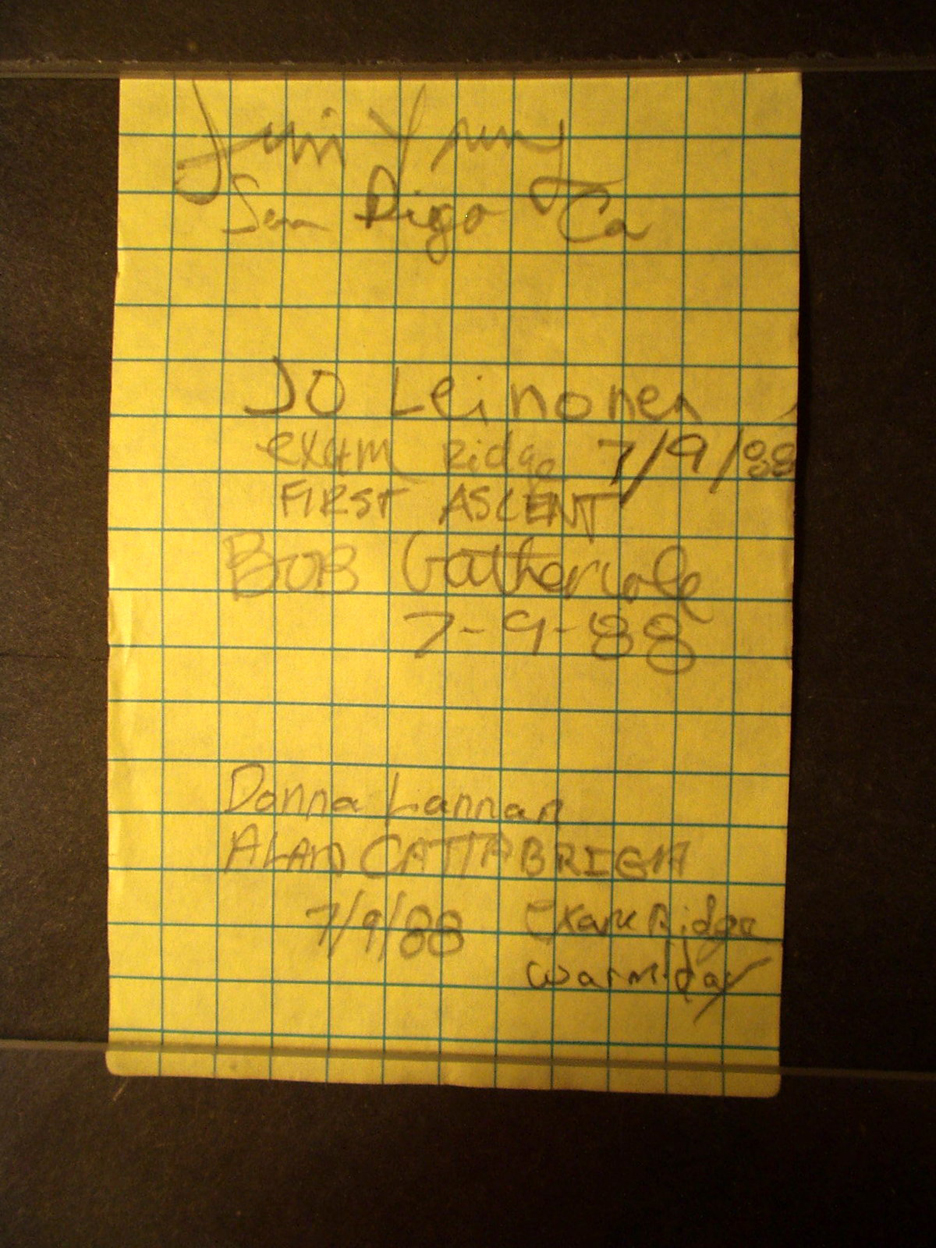 San Digo Ca
Jo Leinonen
exum Ridge 7/9/88
FIRST ASCENT
BOB Gathercole
7-9-88
Donna Lannan
ALAN CATTABRIGA
7/9/88 Exum Ridge
warm day